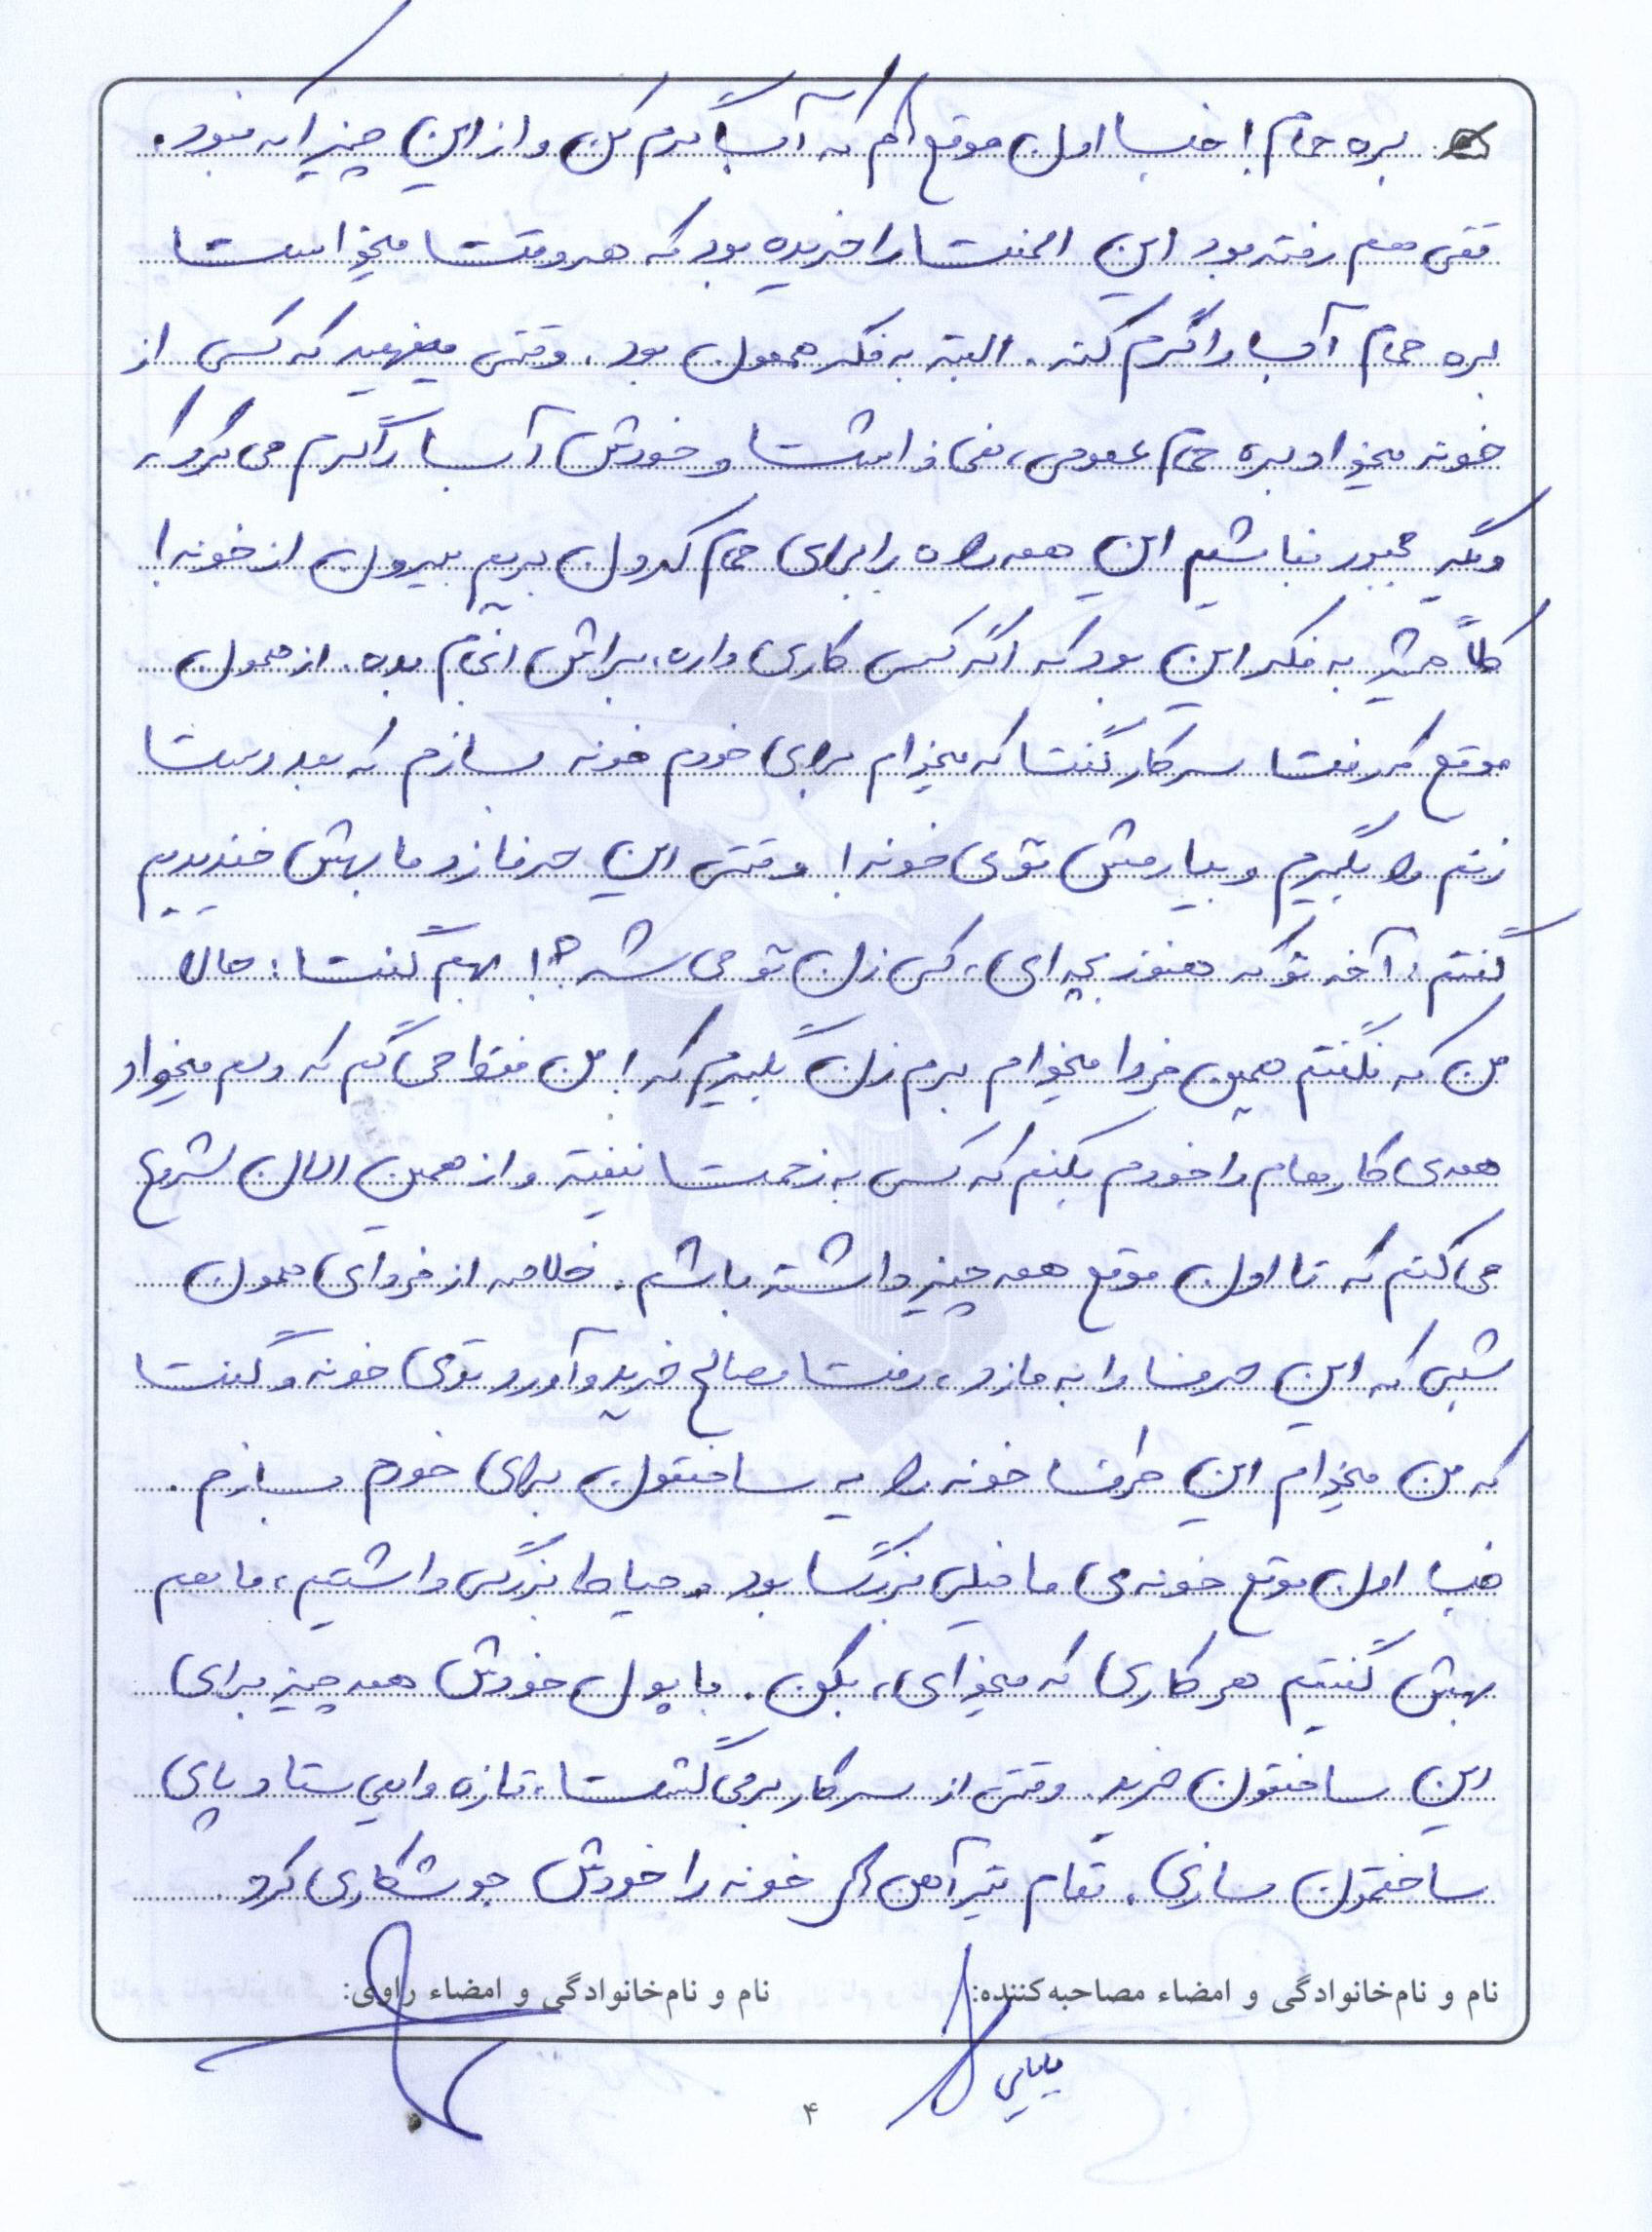 بره حمام! خب اون موقع هم که آب گرم کن و از این چیزا که نبود.
تقی هم رفته بود این المنت را خریده بود که هر وقت میخواست
بره حمام آب را گرم کنه. البته به فکر همه‌مون بود. وقتی میفهمید که کسی از
خونه میخواد بره حمام عمومی، نمی‌ذاشت و خودش آب را گرم می‌کرد که
دیگه مجبور نباشیم این همه راه را برای حمام کردن بریم بیرون از خونه!
کلاً همیشه به فکر این بود که اگر کسی کاری داره، براش انجام بده. از همون
موقع که رفت سر کار گفت که میخوام برای خودم خونه بسازم که بعد دست
زنم را بگیرم و بیارمش توی خونه! وقتی این حرفا زد ما بهش خندیدیم
گفتم: آخه تو که هنوز بچه‌ای، کی زن تو می‌شه؟! بهم گفت: حالا
من که نگفتم همین فردا میخوام برم زن بگیرم که! من فقط می‌گم که دلم میخواد
همه‌ی کارهام را خودم بکنم که کسی به زحمت نیفته و از همین الان شروع
می‌کنم که تا اون موقع همه چیز داشته باشم. خلاصه از فردای همون
شبی که این حرف را به ما زد، رفت مصالح خرید و آورد توی خونه و گفت
که من میخوام این طرف خونه را یه ساختمون برای خودم بسازم.
خب اون موقع خونه‌ی ما خیلی بزرگ بود و حیاط بزرگی داشتیم، ما هم
بهش گفتیم هر کاری که میخوای، بکن. با پول خودش همه چیز برای
این ساختمون خرید. وقتی از سر کار برمی‌گشت، تازه وامی‌ستاد پای
ساختمون سازی. تمام تیرآهن های خونه را خودش جوشکاری کرد.
نام و نام‌خانوادگی و امضاء مصاحبه‌کننده: نام و نام‌خانوادگی و امضاء راوی:
بابایی
۴